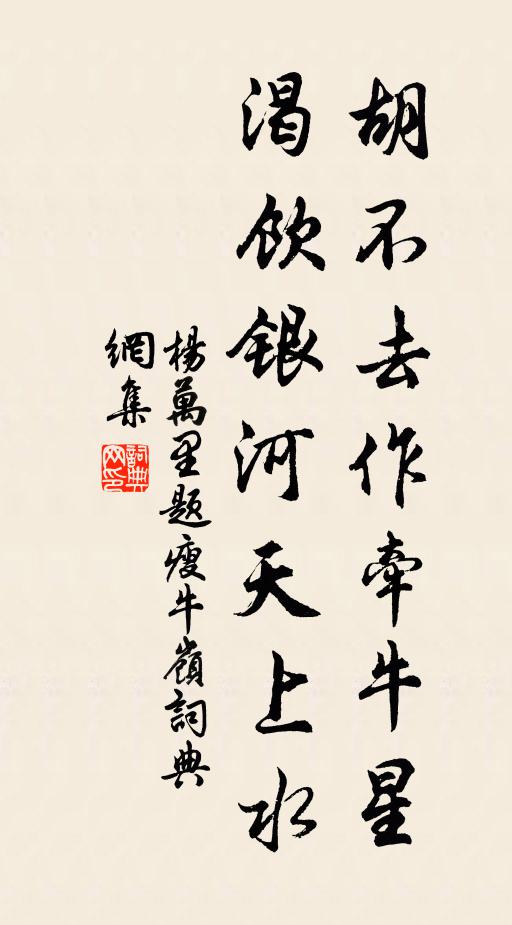 胡不去作牽牛星
渴飲銀河天上水
楊萬里題瘦牛嶺詞典
網集
詞典網印